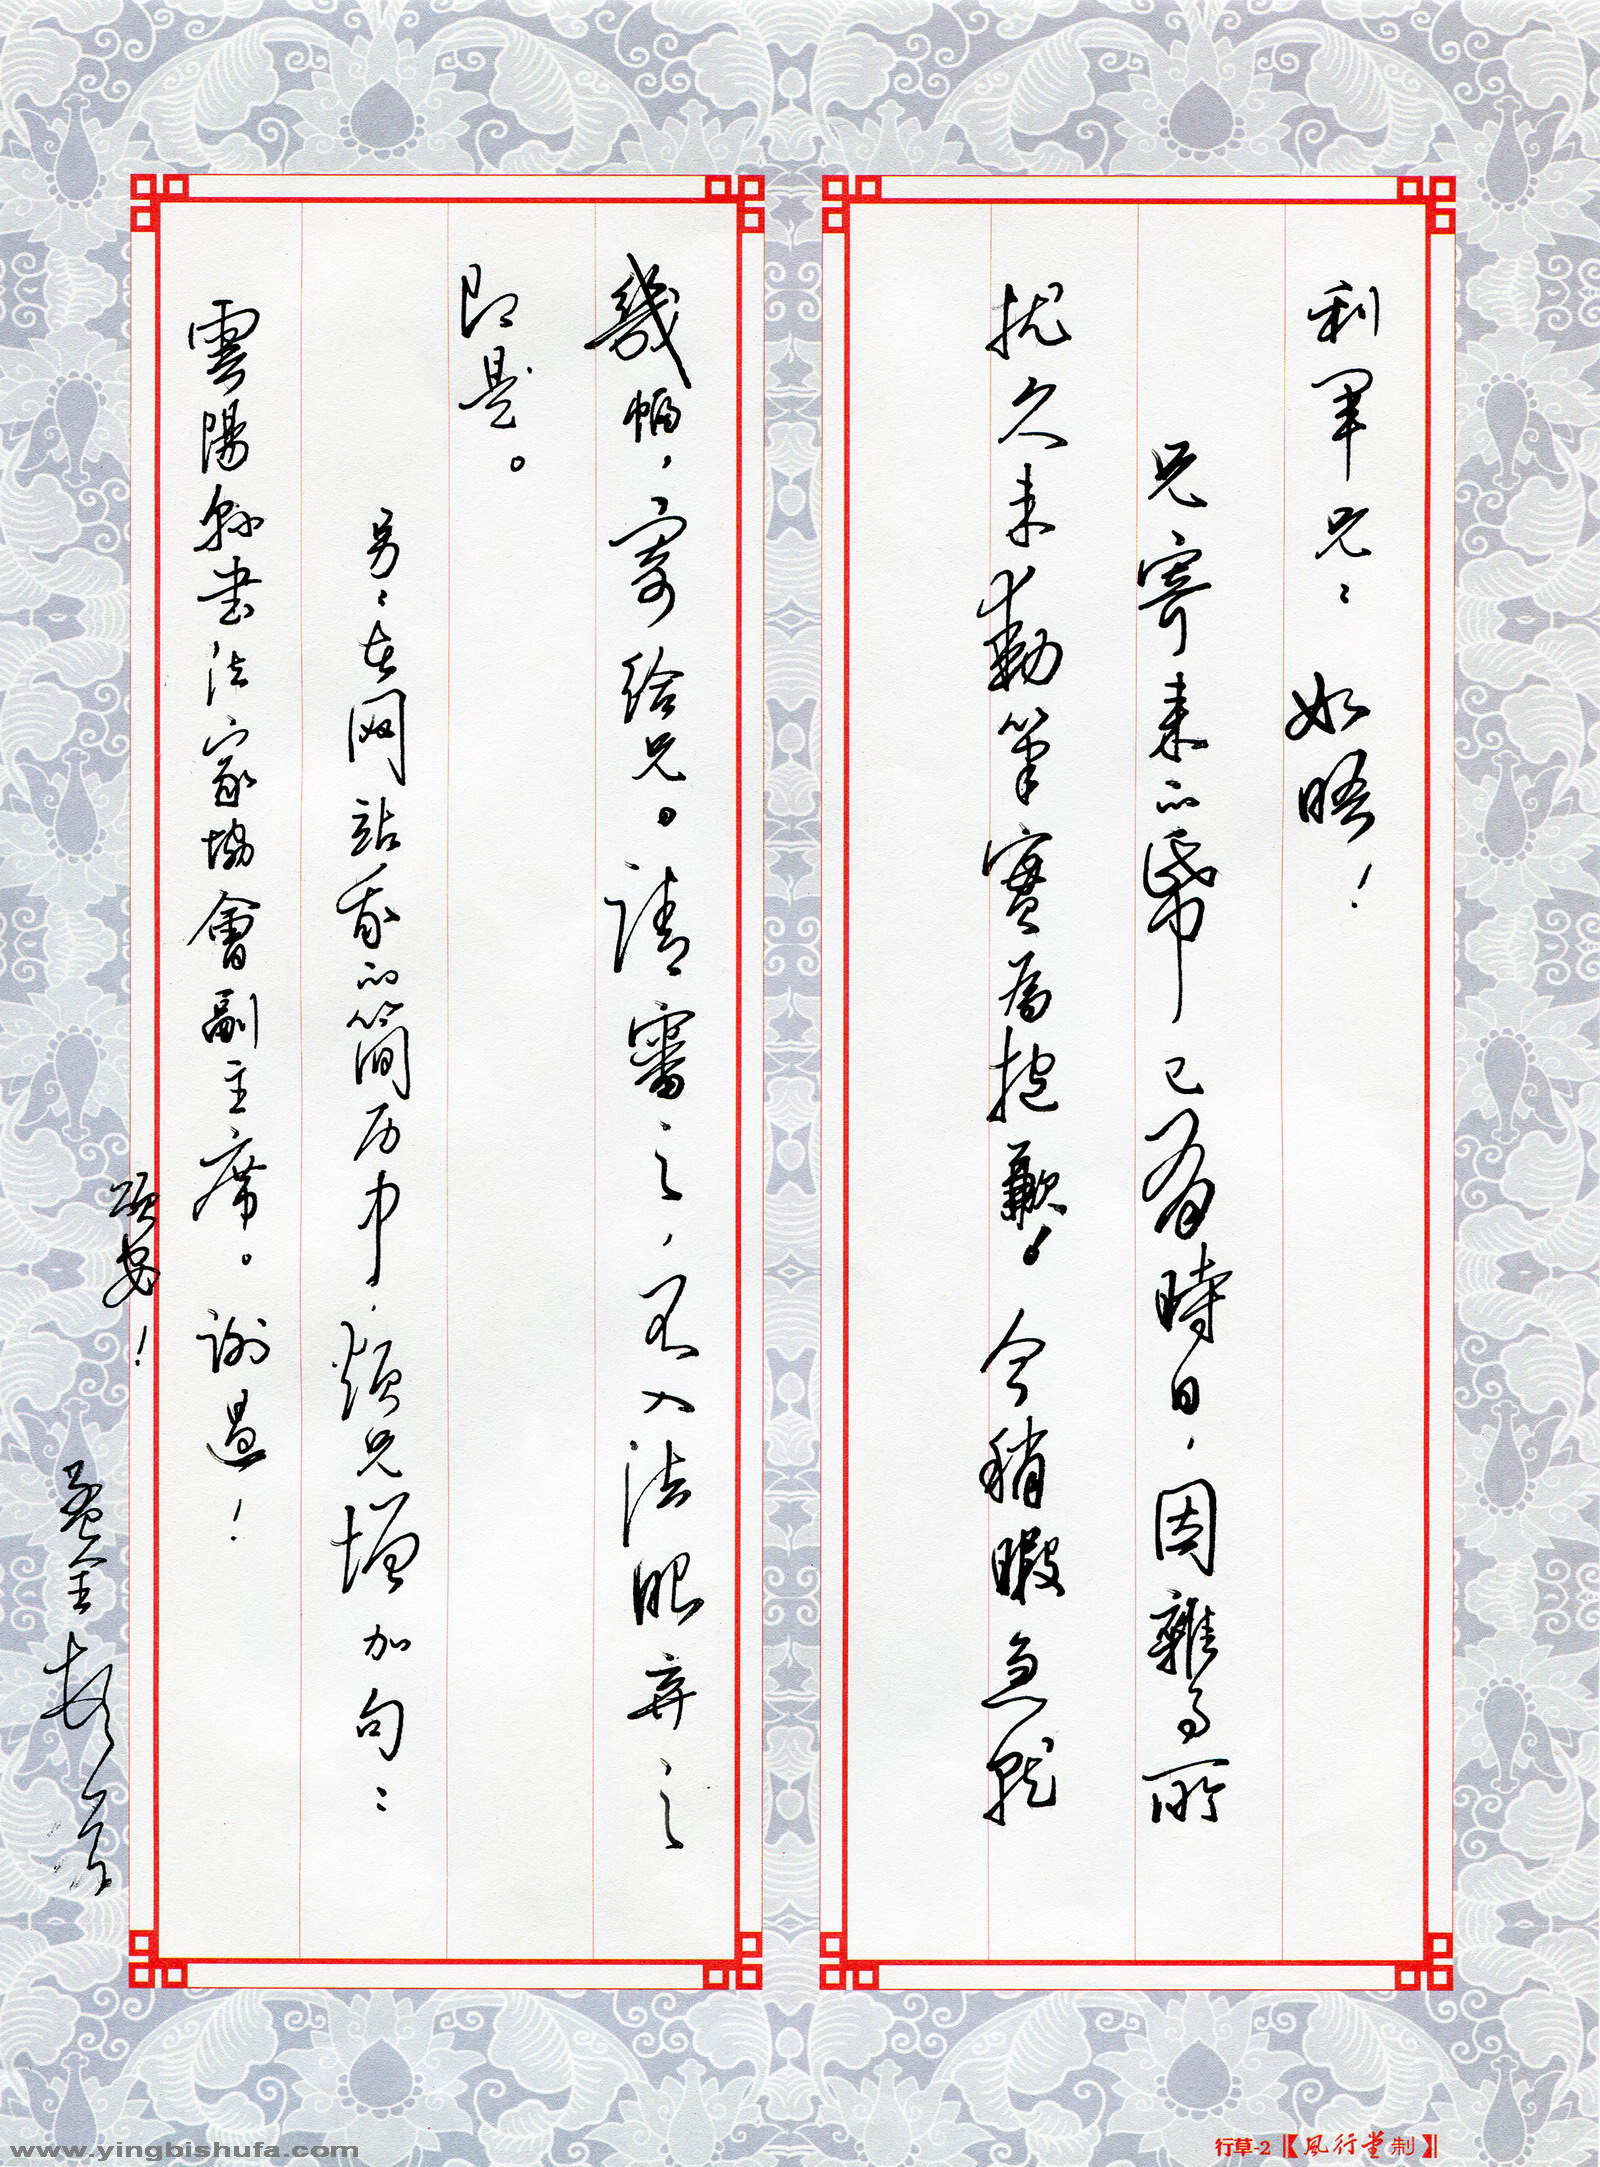 利军兄：如晤！
兄寄来的纸已有時日，因雜事所
扰久未動筆實为抱歉！今稍暇急就
幾幅，寄给兄。请審之，不入法眼弃之
即是。
另：在网站我的简历中，烦兄增加句：
雲陽縣書法家協會副主席。谢過！
頌安！
孟金
www.yingbishufa.com
行草-2【風行堂制】